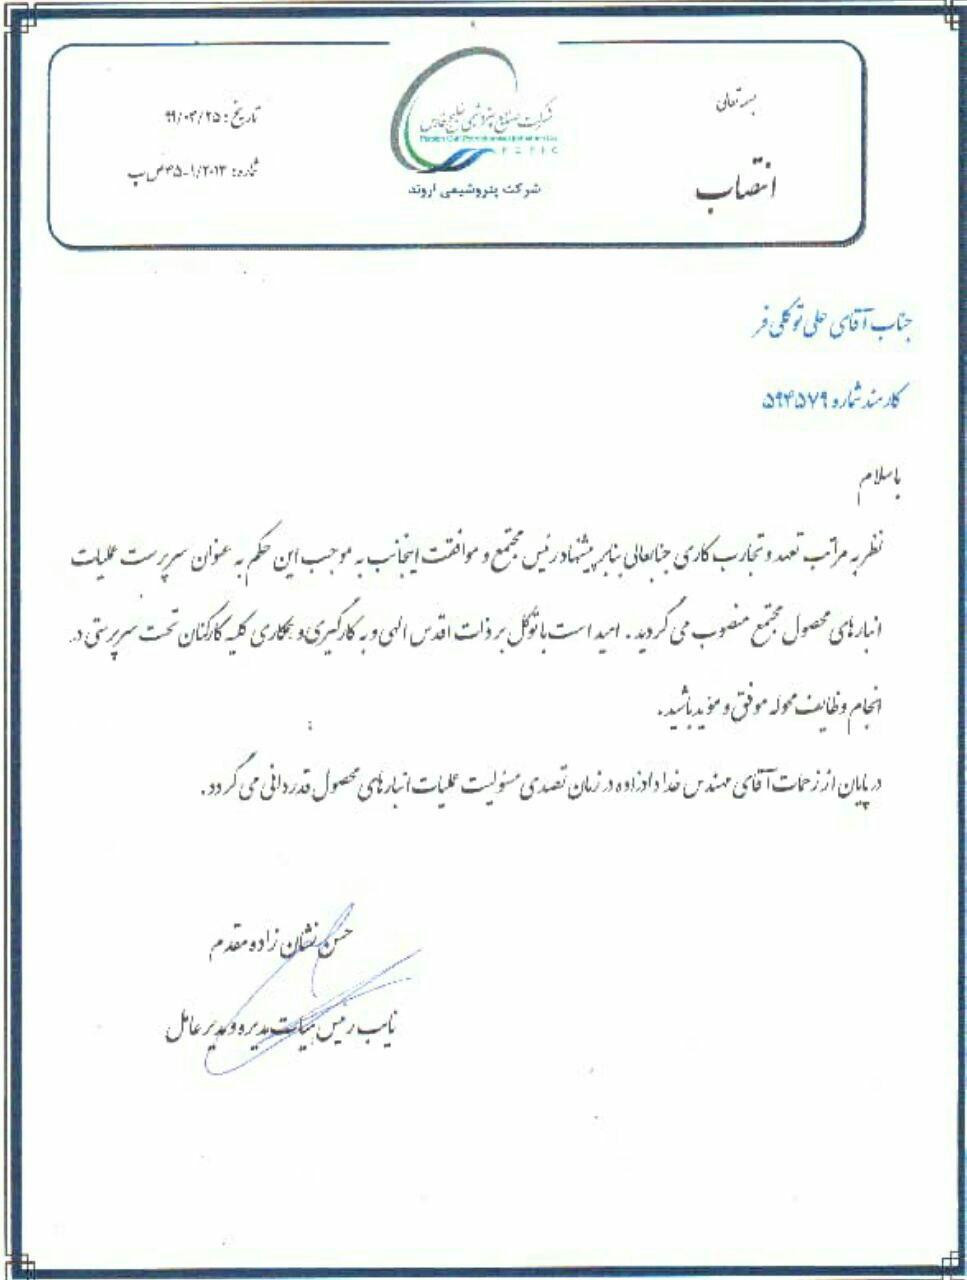 بسمه تعالی
انتصاب
شرکت صنایع پتروشیمی خلیج فارس
Persian Gulf Petrochemical Industries Co.
P G P I C
شرکت پتروشیمی اروند
تاریخ: ۹۹/۰۳/۲۵
شماره: ۴۵-۱/۲۰۱۳ ص پ
جناب آقای علی توکلی فر
کارمند شماره ۵۹۴۵۷۹
باسلام
نظر به مراتب تعهد و تجارب کاری جنابعالی بنابر پیشنهاد رئیس مجتمع و موافقت اینجانب به موجب این حکم به عنوان سرپرست عملیات
انبارهای محصول مجتمع منصوب می گردید. امید است با توکل بر ذات اقدس الهی و به کارگیری و همکاری کلیه کارکنان تحت سرپرستی در
انجام وظایف محوله موفق و مؤید باشید.
در پایان از زحمات آقای مهندس خدادادزاده در زمان تصدی مسئولیت عملیات انبارهای محصول قدردانی می گردد.
حسن نشان زاده مقدم
نایب رئیس هیات مدیره و مدیر عامل